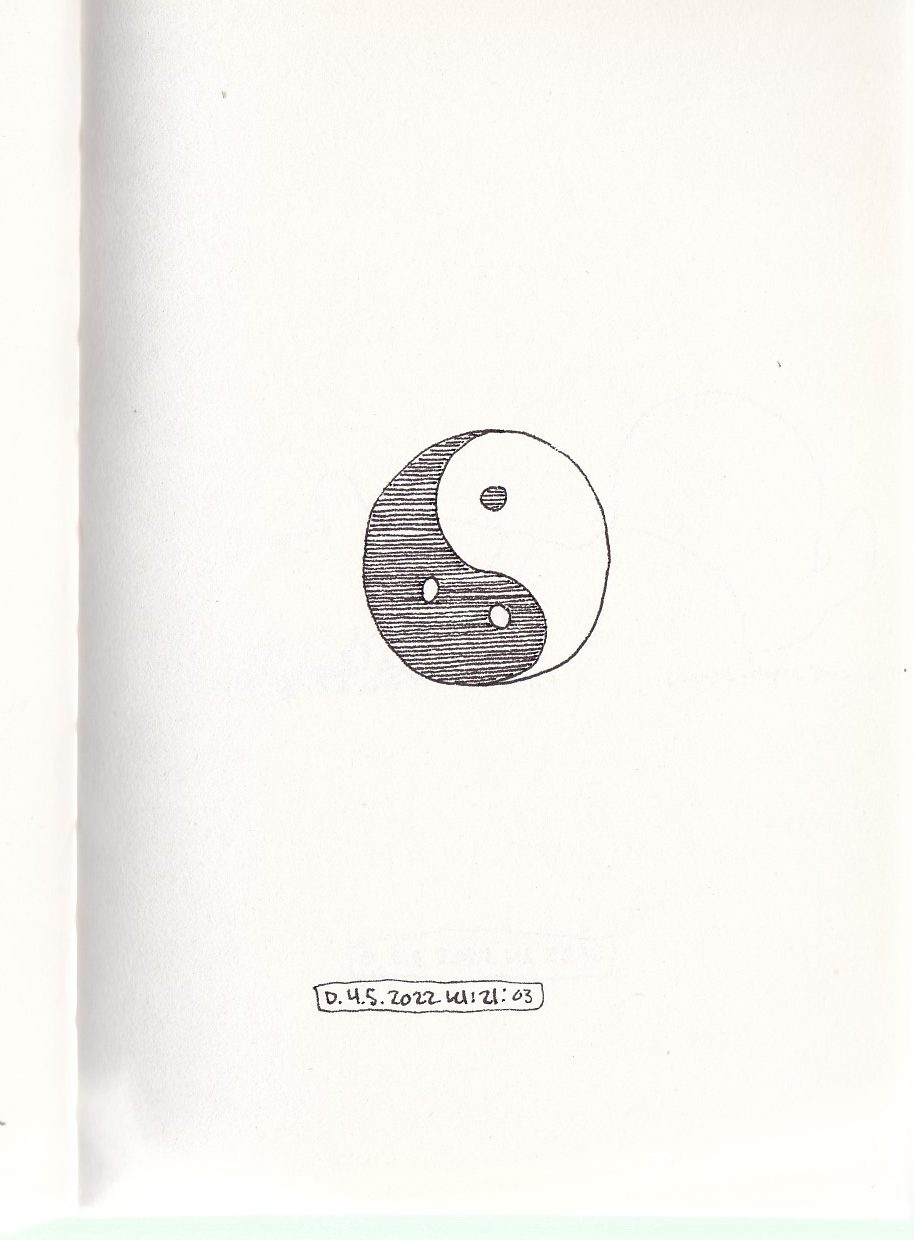 D. 4.5.2022 kl: 21:03